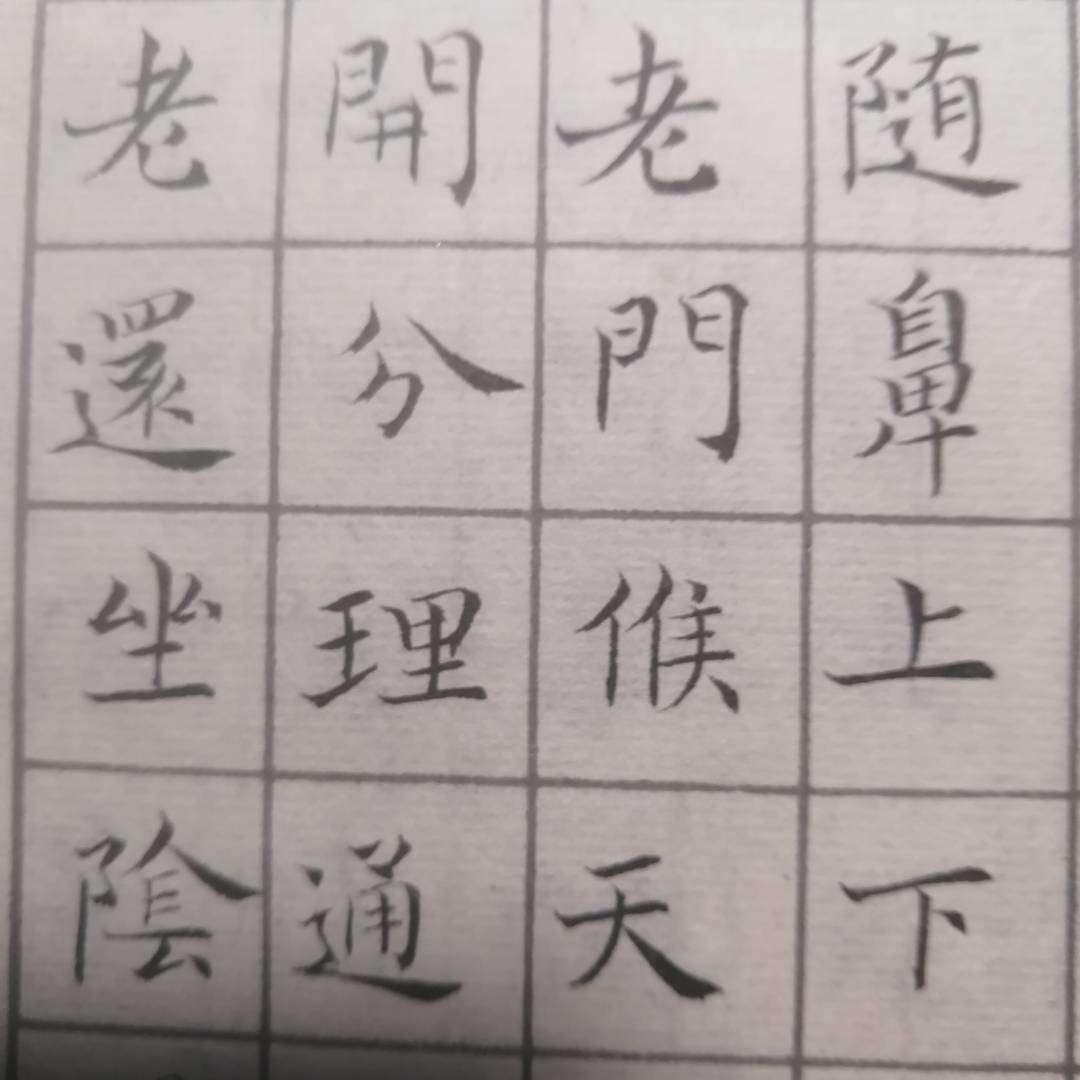 随鼻上下
老門候天
開分理通
老還坐陰